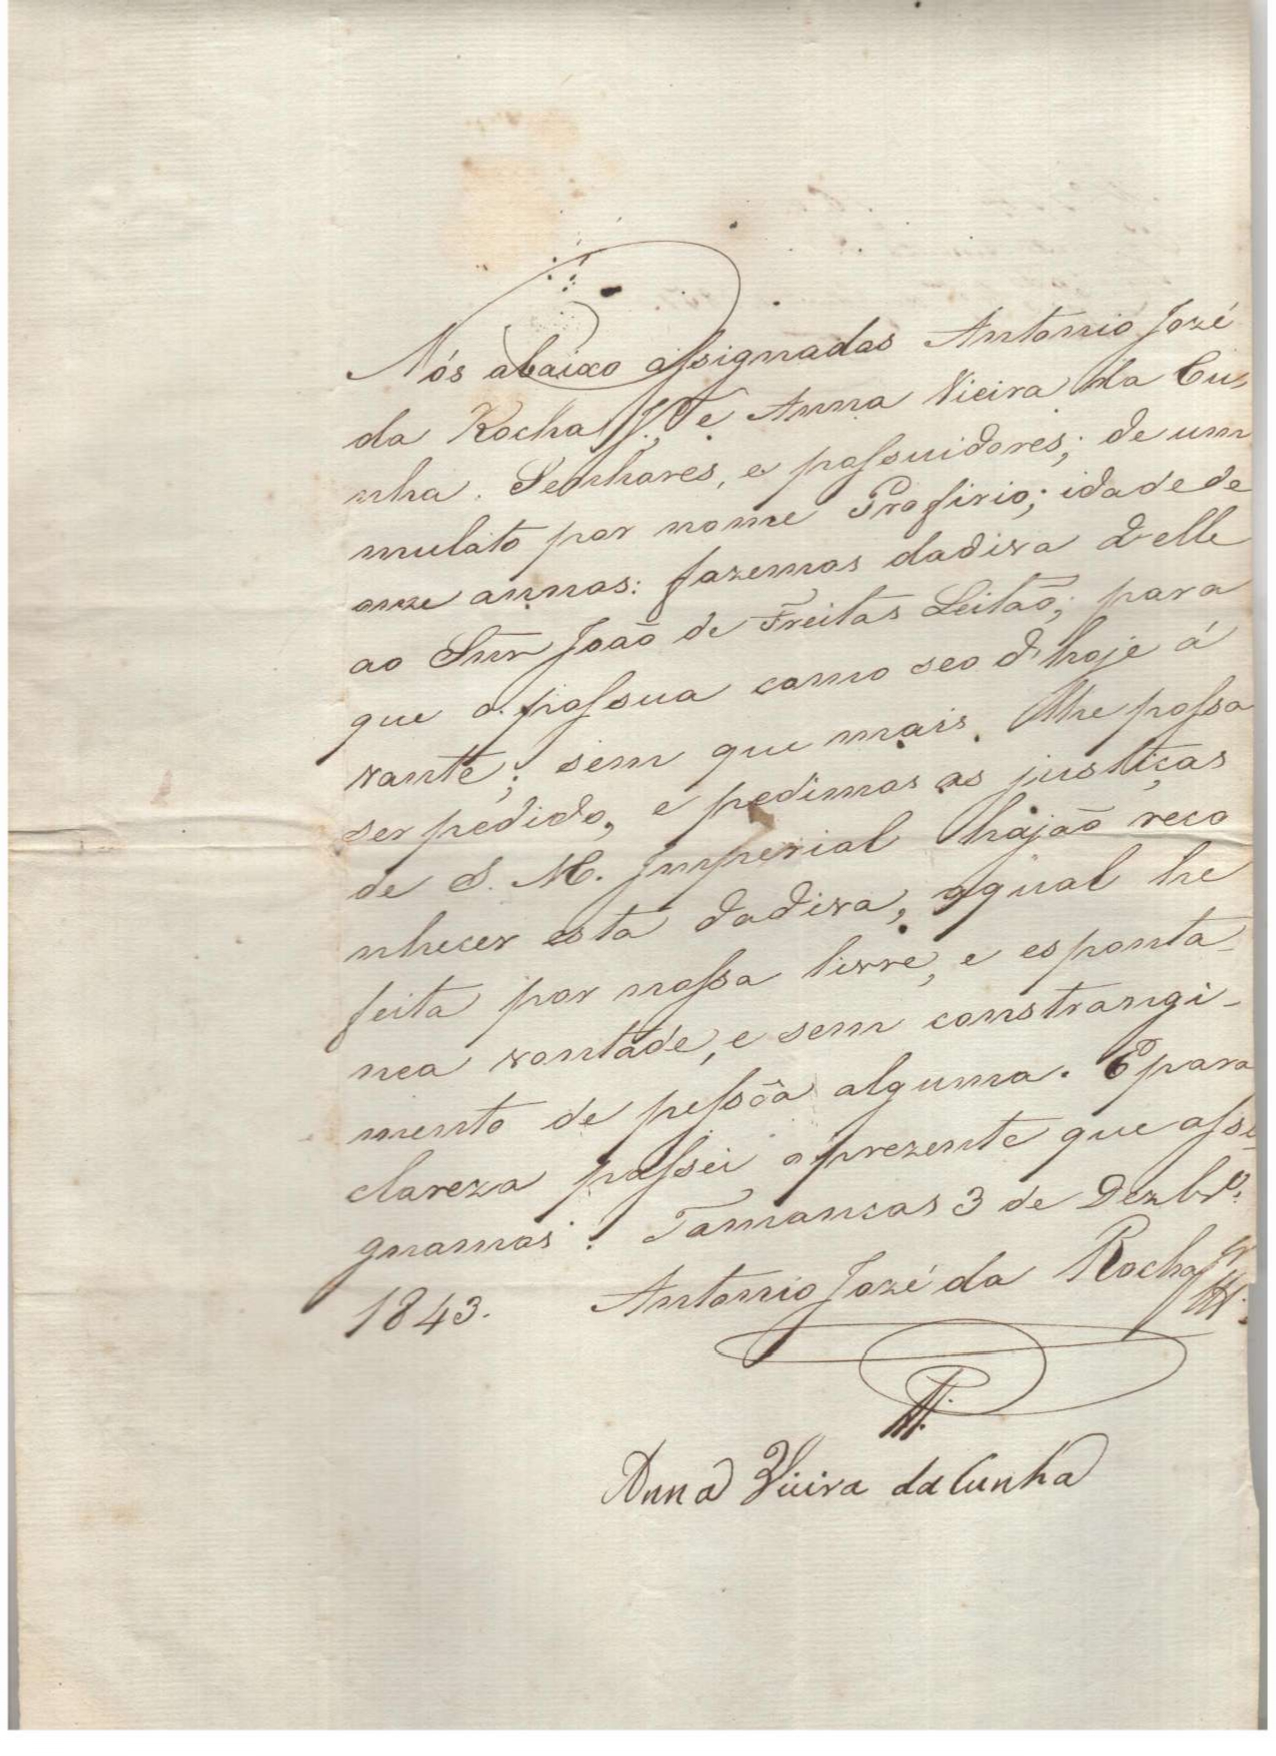 Nós abaixo assignados Antonio Jozé
da Rocha Jr. e Anna Vieira da Cu,
nha. Senhores, e possuidores; de um
mulato por nome Profirio; idade de
onze annos: fazemos dadiva d'elle
ao Snr João de Freitas Leitão; para
que o possua como seo d'hoje á
vante; sem que mais lhe possa
ser pedido, e pedimos as justiças
de S. M. Imperial hajão reco
nhecer esta dadiva, aqual he
feita por nossa livre, e esponta-
nea vontade, e sem constrangi-
mento de pessôa alguma. E para
clareza passei aprezente que assi,
gnamos. Tamancas 3 de Dezbro.
1843. Antonio Jozé da Rocha Jr
Anna Vieira da Cunha